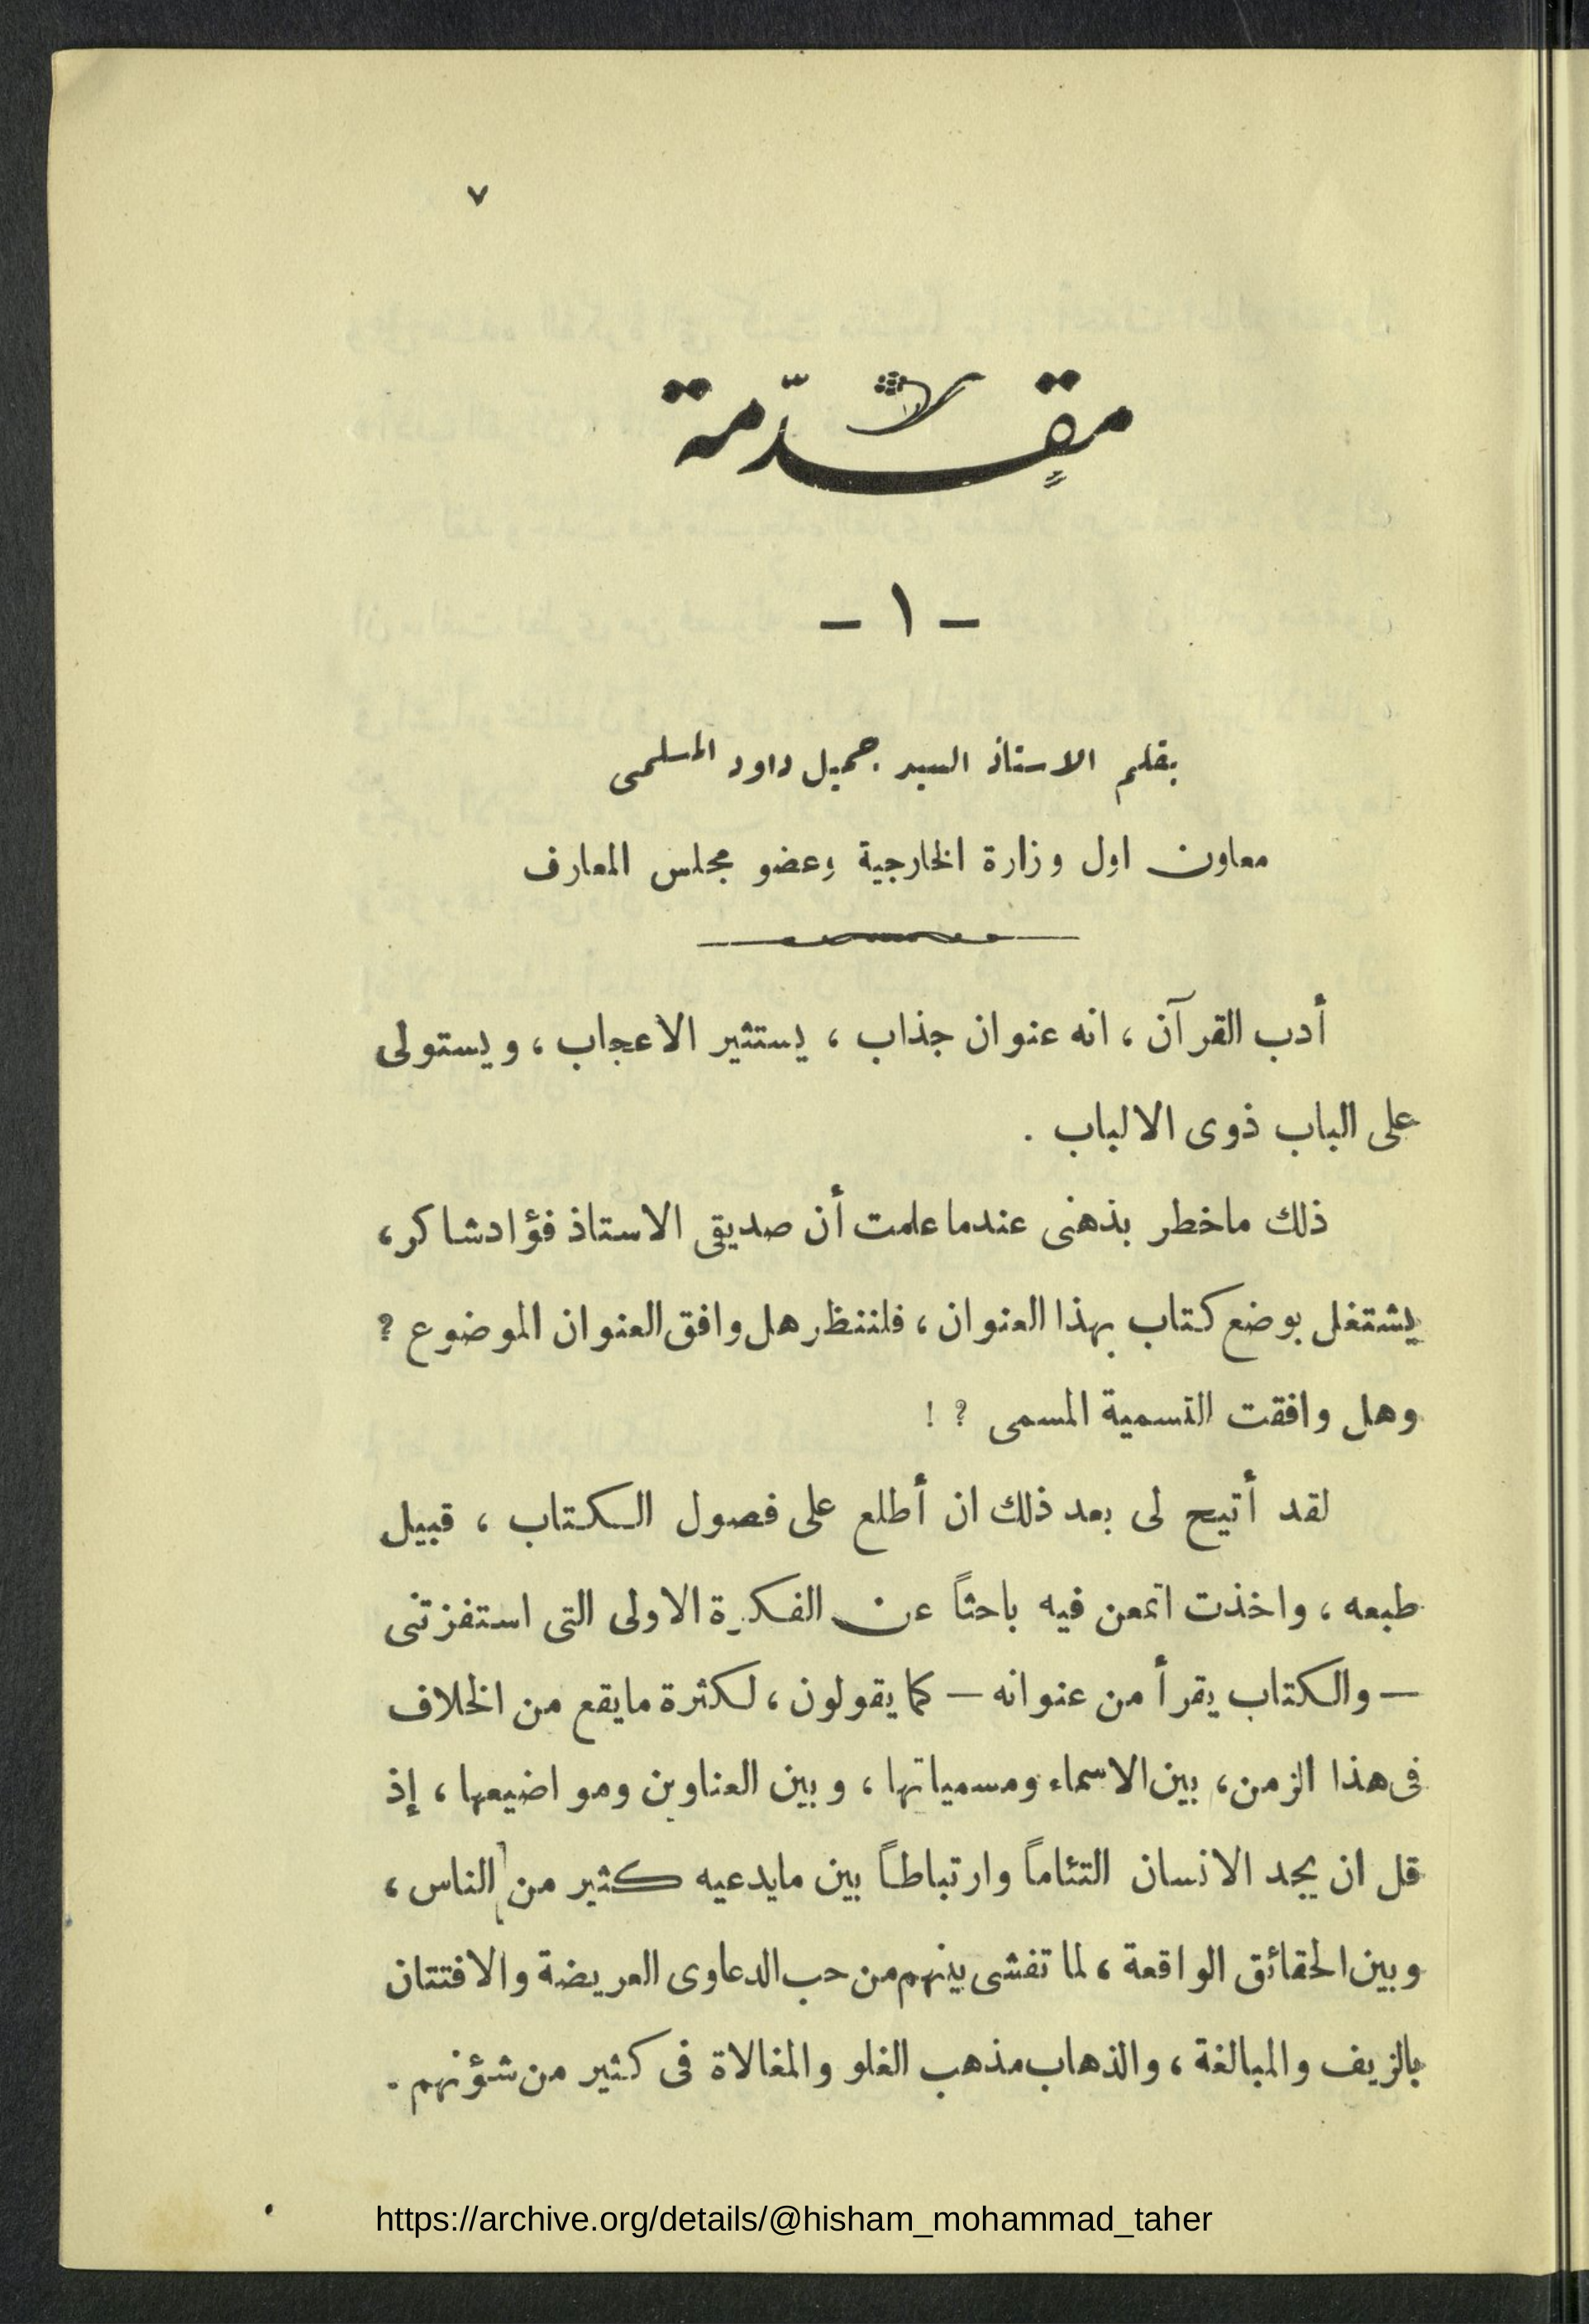 ٧
مقدّمة
- ١ -
بقلم الاستاذ السيد جميل داود المسلمى
معاون اول وزارة الخارجية وعضو مجلس المعارف
أدب القرآن ، انه عنوان جذاب ، يستثير الاعجاب ، ويستولى
على الباب ذوى الالباب .
ذلك ماخطر بذهنى عندما علمت أن صديقى الاستاذ فؤاد شاكر ،
يشتغل بوضع كتاب بهذا العنوان ، فلننظر هل وافق العنوان الموضوع ؟
وهل وافقت التسمية المسمى ؟ !
لقد أتيح لى بعد ذلك ان أطلع على فصول الكتاب ، قبيل
طبعه ، واخذت اتمعن فيه باحثاً عن الفكرة الاولى التى استفزتنى
— والكتاب يقرأ من عنوانه — كما يقولون ، لكثرة مايقع من الخلاف
فى هذا الزمن ، بين الاسماء ومسمياتها ، وبين العناوين ومواضيعها ، إذ
قل ان يجد الانسان التئاماً وارتباطاً بين مايدعيه كثير من الناس ،
وبين الحقائق الواقعة ، لما تفشى بينهم من حب الدعاوى العريضة والافتتان
بالزيف والمبالغة ، والذهاب مذهب الغلو والمغالاة فى كثير من شؤنهم .
https://archive.org/details/@hisham_mohammad_taher